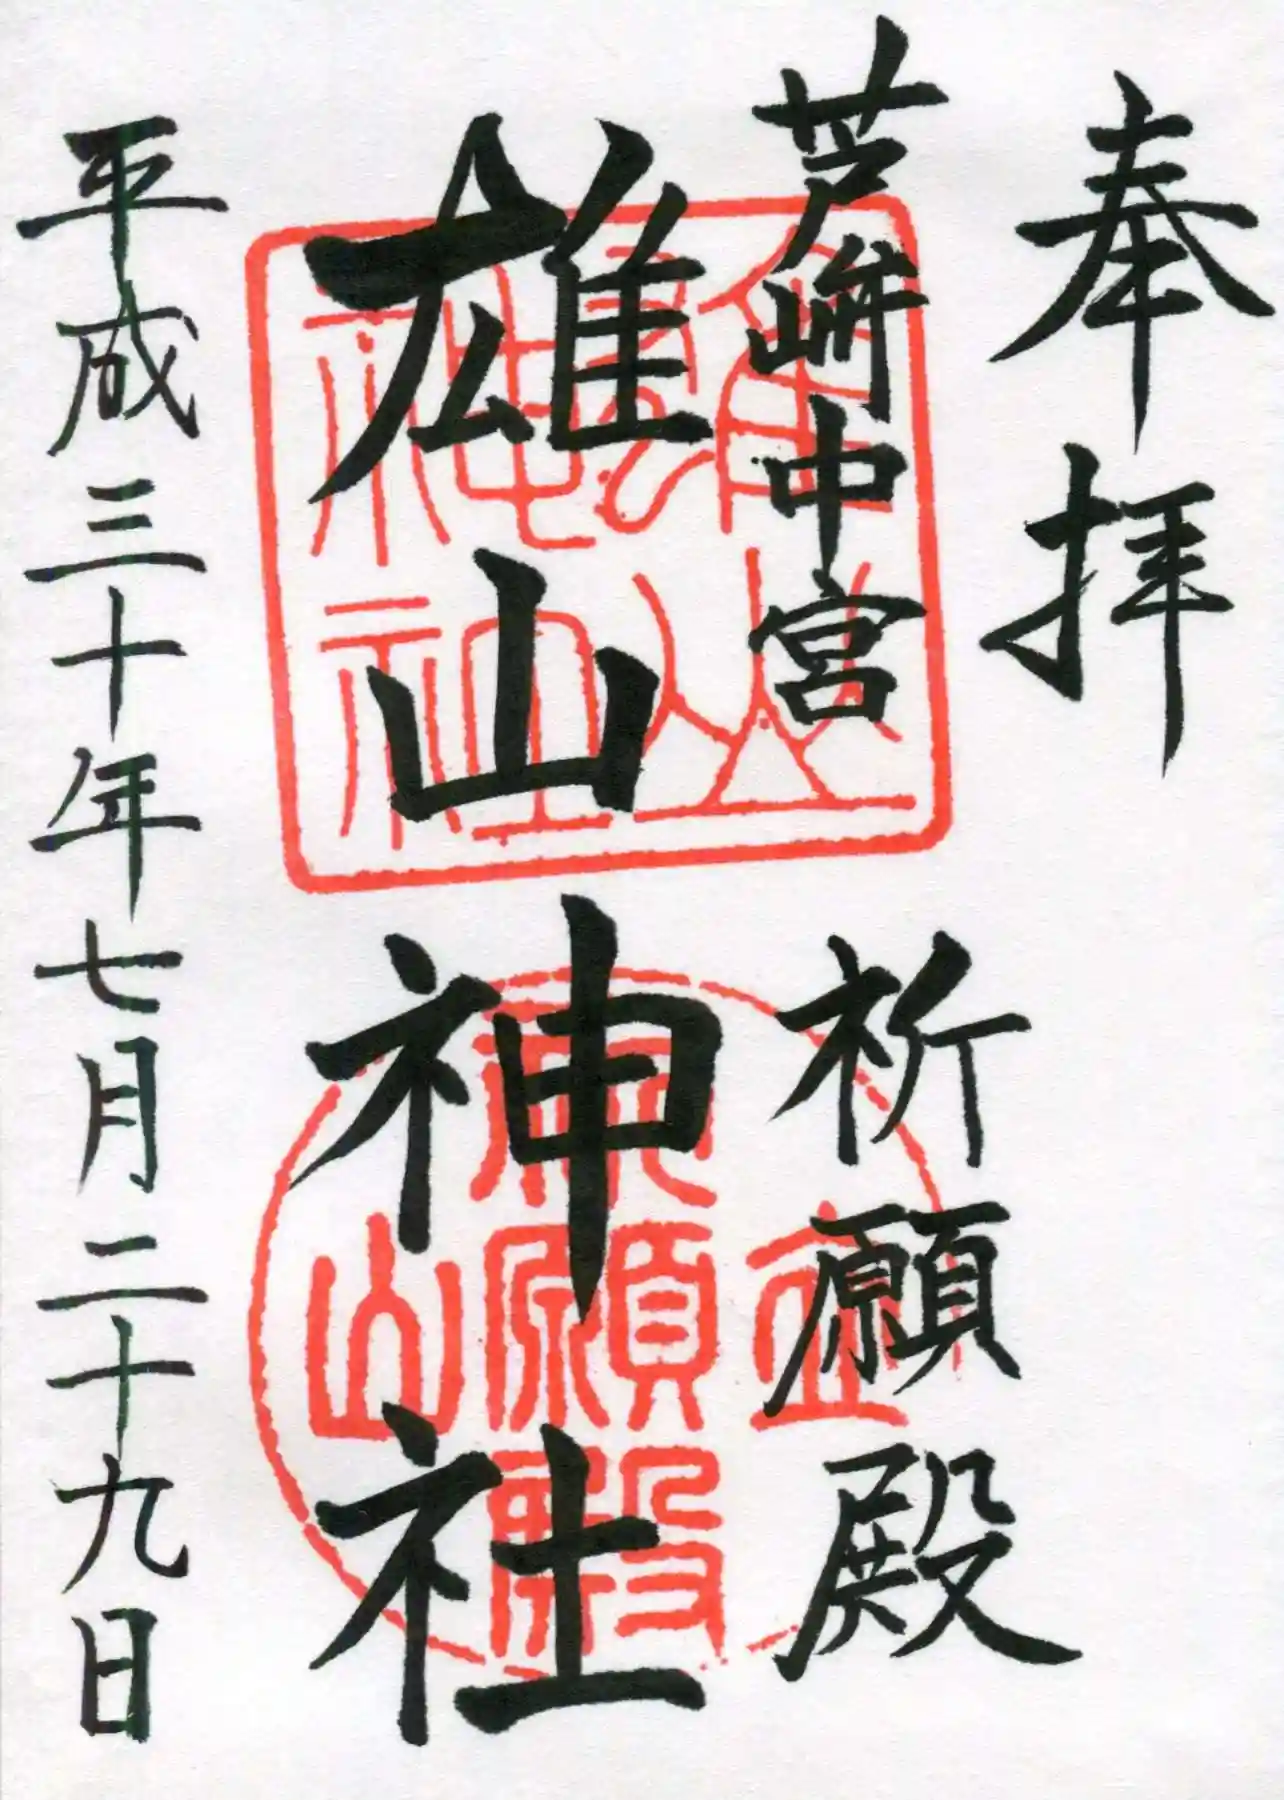 奉拝
芦峅中宮 祈願殿
雄山神社
平成三十年七月二十九日
雄山神社
立山
祈願殿